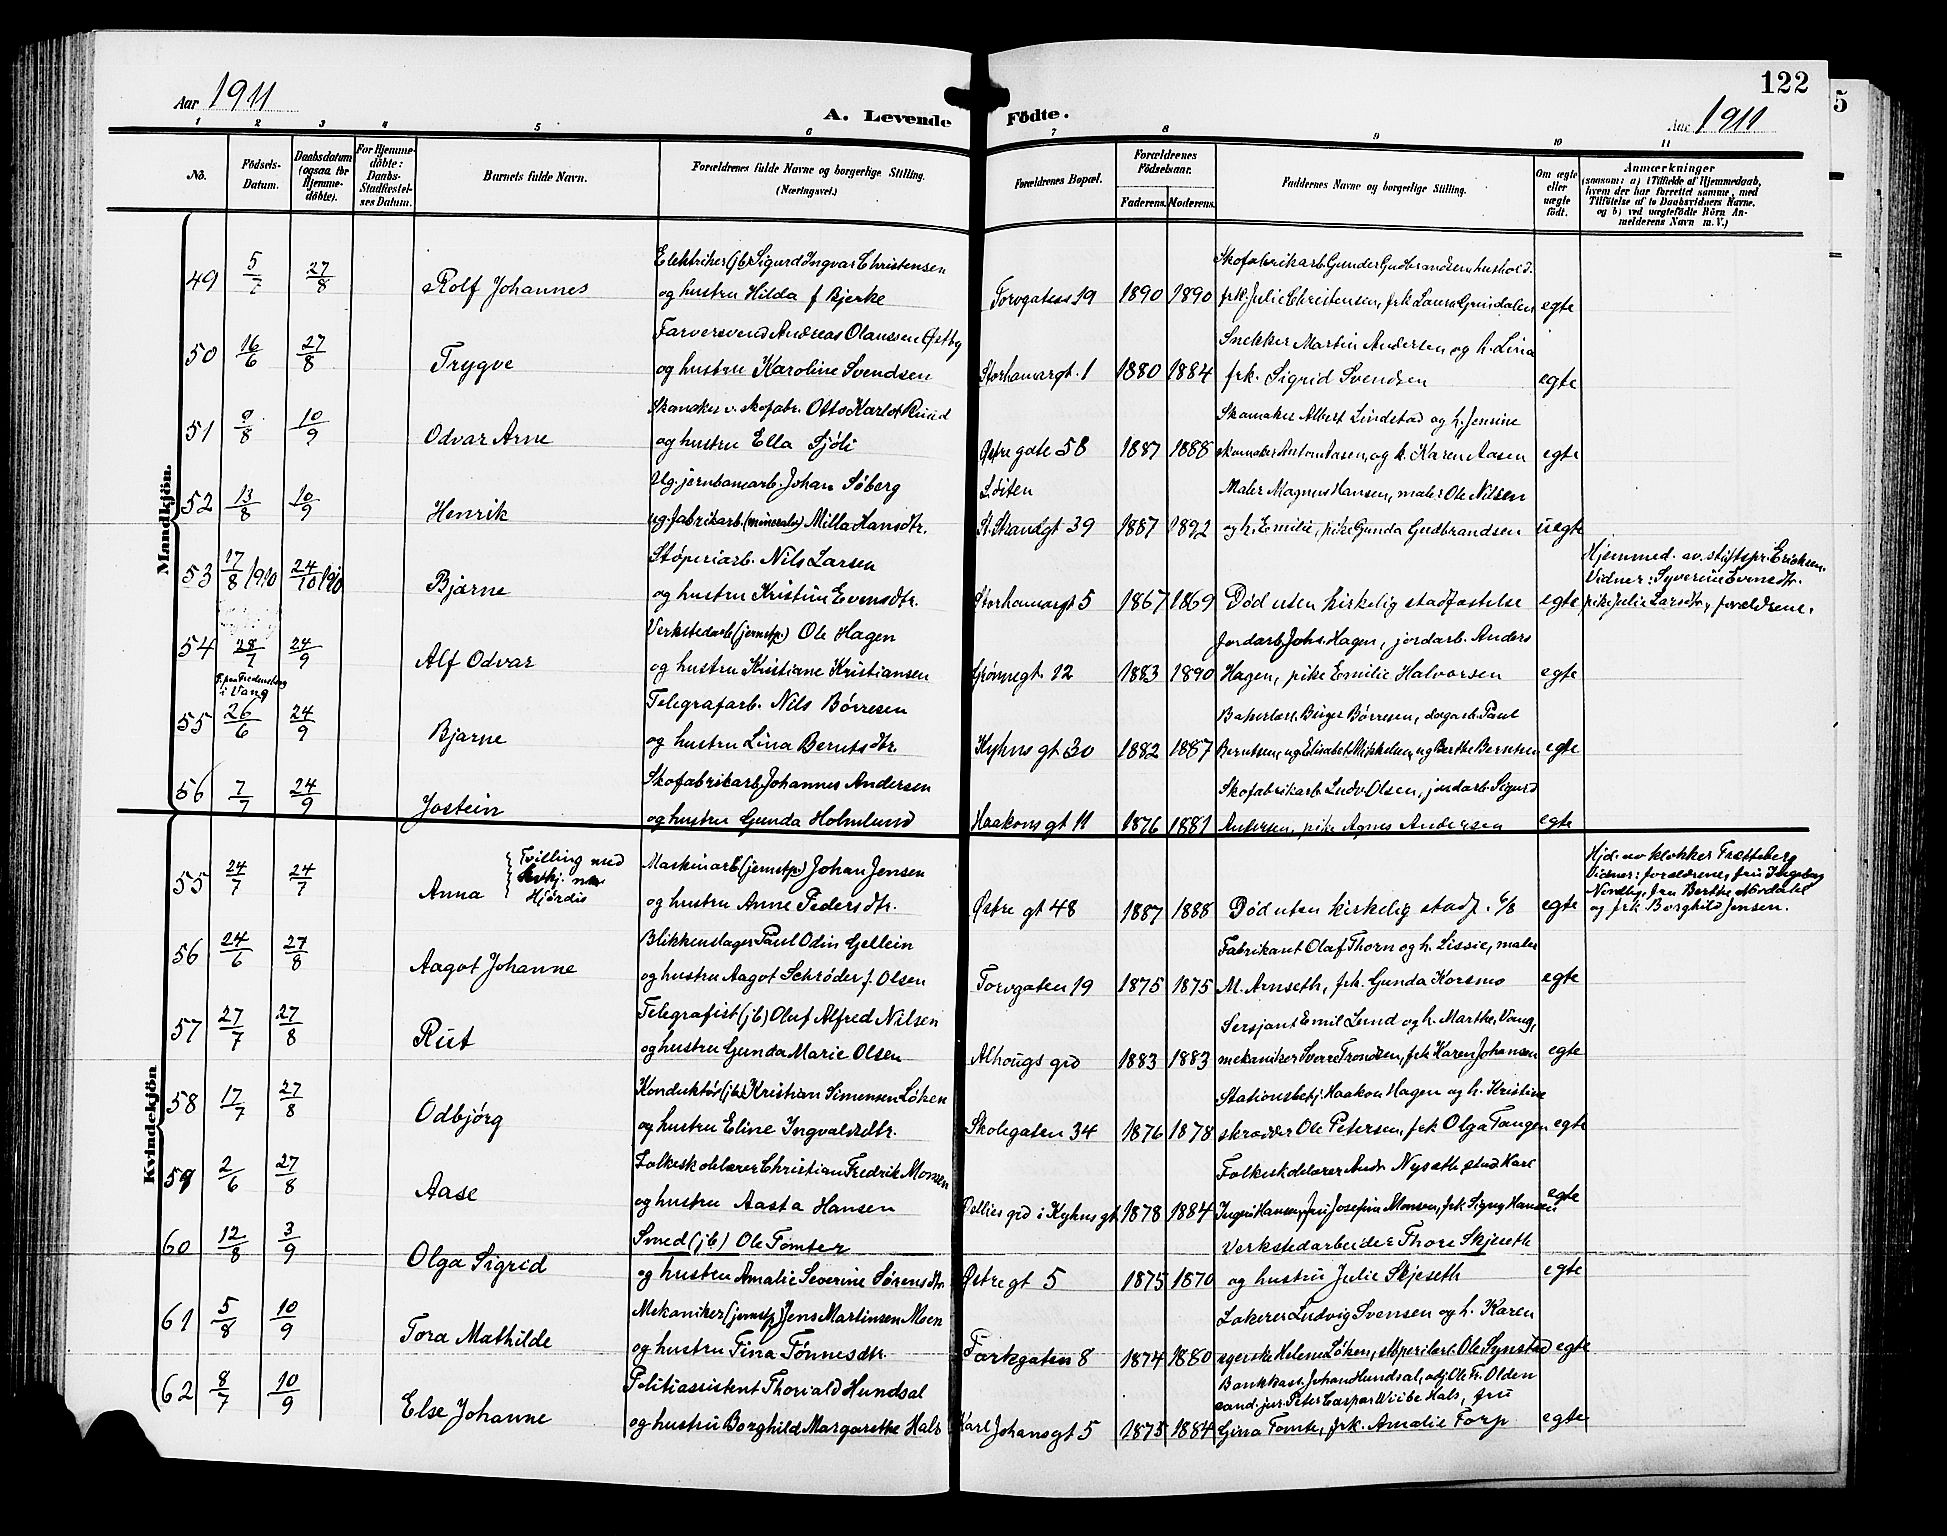 122
5
Aar 1911
A. Levende Födte.
Aar 1911
1 2 3 4 5 6 7 8 9 10 11
No.
Födsels-Datum.
Daabsdatum (ogsaa for Hjemme-döbte).
For Hjemme-döbte: Daabs-Stadfæstel-ses Datum.
Barnets fulde Navn.
Forældrenes fulde Navne og borgerlige Stilling.
(Næringsvei.)
Forældrenes Bopæl.
Forældrenes Födselsaar.
Faderens. Moderens.
Faddernes Navne og borgerlige Stilling.
Om ægte eller uægte födt.
Anmærkninger
(saasom: a) i Tilfælde af Hjemmedaab,
hvem der har forrettet samme, med
Tilföielse af to Daabsvidners Navne.
og b) ved uægtefödte Börn An-
melderens Navn m. V.)
Mandkjön.
Elektriker (jb) Sigurd Ingvar Christensen Skofabrikarb. Gunder Gudbrandsen hushold.
49 5/7 27/8 Rolf Johannes og hustru Hilda f Bjerke Torvgaten 19 1890 1890 frk. Julie Christensen, frk Laura Grindalen egte
Farversvend Andreas Olaussen Østby Snekker Martin Andersen og h. Lina
50 16/6 27/8 Trygve og hustru Karoline Svendsen Storhamargt. 1 1880 1884 frk. Sigrid Svendsen egte
Skomaker v. skofabr. Otto Karlot Ruud Skomaker Albert Lindstad og h. Jensine
51 9/8 10/9 Odvar Arne og hustru Ella Sjöli Østre gate 58 1887 1888 skomaker Anton Aasen, og h. Karen Aasen egte
Ug. jernbanearb. Johan Söberg Löiten Maler Magnus Hansen, maler Ole Nilsen
52 13/8 10/9 Henrik ug. fabrikarb. (mineralv) Milla Hansdtr. St. Strandgt 39 1887 1892 og h. Emilie, pike Gunda Gudbrandsen uegte
Støperiarb. Nils Larsen Hjemmed. av stiftspr. Ericksen.
53 17/8 1910 24/10 1910 Bjarne og hustru Kristine Evensdtr. Storhamargt 5 1867 1869 Død uten kirkelig stadfæstelse egte Vidner: Syverine Evensdtr.
pike Julie Larsdtr, forældrene.
Verkstedarb (jernstp.) Ole Hagen Jordarb Johs. Hagen, jordarb. Anders
54 28/7 24/9 Alf Odvar og hustru Kristiane Kristiansen Grönnegt. 12 1883 1890 Hagen, pike Emilie Halvorsen egte
F. paa Fredensborg i Vang
Telegrafarb. Nils Börresen Birger Börresen, dagarb. Paul
55 26/6 24/9 Bjarne og hustru Lina Berntsdtr. Kyhns gt 30 1882 1887 Berntsen, ug Elisabet Mikkelsen, ug Berthe Berntsen egte
Skofabrikarb Johannes Andersen Skofabrikarb Ludv. Olsen, jordarb. Sigurd
56 7/7 24/9 Jostein og hustru Gunda Holmlund Haakons gt 11 1876 1881 Andersen, pike Agnes Andersen egte
Kvindekjön
Maskinarb (jernstp.) Johan Jensen Hjd. av klokker Frætteberg
55 24/7 24/7 Anna Tvilling med Hjördis og hustru Anne Pedersdtr. Østre gt 48 1887 1888 Död uten kirkelig stadf. 6/8 egte Vidner: forældrene, fru Ingeborg
Nordby, fru Berthe
og frk Borghild Jensen.
Blikkenslager Paul Odin Gellein Fabrikant Olaf Thorn og h. Lissie, maler
56 24/6 27/8 Aagot Johanne og hustru Aagot Schrøder f. Olsen Torvgaten 19 1875 1875 M. Arnseth, frk. Gunda Korsmo egte
Telegrafist (jb) Oluf Alfred Nilsen Sersjant Emil Lund og h. Marthe, Vang,
57 27/7 27/8 Rut og hustru Gunda Marie Olsen Alhougs grd 1883 1883 mekaniker Sverre Trondsen, frk Karen Johansen egte
Konduktør (jb) Kristian Simensen Löken Stationsbetj. Haakon Hagen og h. Kristine
58 17/7 27/8 Odbjörg og hustru Eline Ingvaldsdtr. Skolegaten 34 1876 1878 skrædder Ole Petersen, frk Olga Tangen egte
Folkeskolelærer Christian Fredrik Monsen Folkeskolelærer Andr. Nyseth, stud Karl
59 2/6 27/8 Aase og hustru Aasta Hansen grd i Kyhns gt 1878 1884 Hansen, fru Josefine Monsen, frk. Signy Hansen egte
Smed (jb) Ole Tomter Verkstedarbeider Thore Skjeseth
60 12/8 3/9 Olga Sigrid og hustru Amalie Severine Sörensdtr. Østre gt 5 1875 1870 og hustru Julie Skjeseth egte
Mekaniker (jernstp) Jens Martinsen Moen Lakerer Ludvig Svensen og h. Karen
61 5/8 10/9 Tora Mathilde og hustru Tina Tönnesdtr. Parkgaten 8 1874 1880 Helene Löken, støperiarb. Ole Synstad egte
Politiassistent Thorvald Hundsal Bankkass. Johan Hundsal, adj. Ole Fr. Olden
cand. jur. Peter Caspar Wiibe Hals, fru
62 8/7 10/9 Else Johanne og hustru Borghild Margarethe Hals Karl Johansgt 5 1873 1884 Gina Tomte, frk. Amalie Torp egte